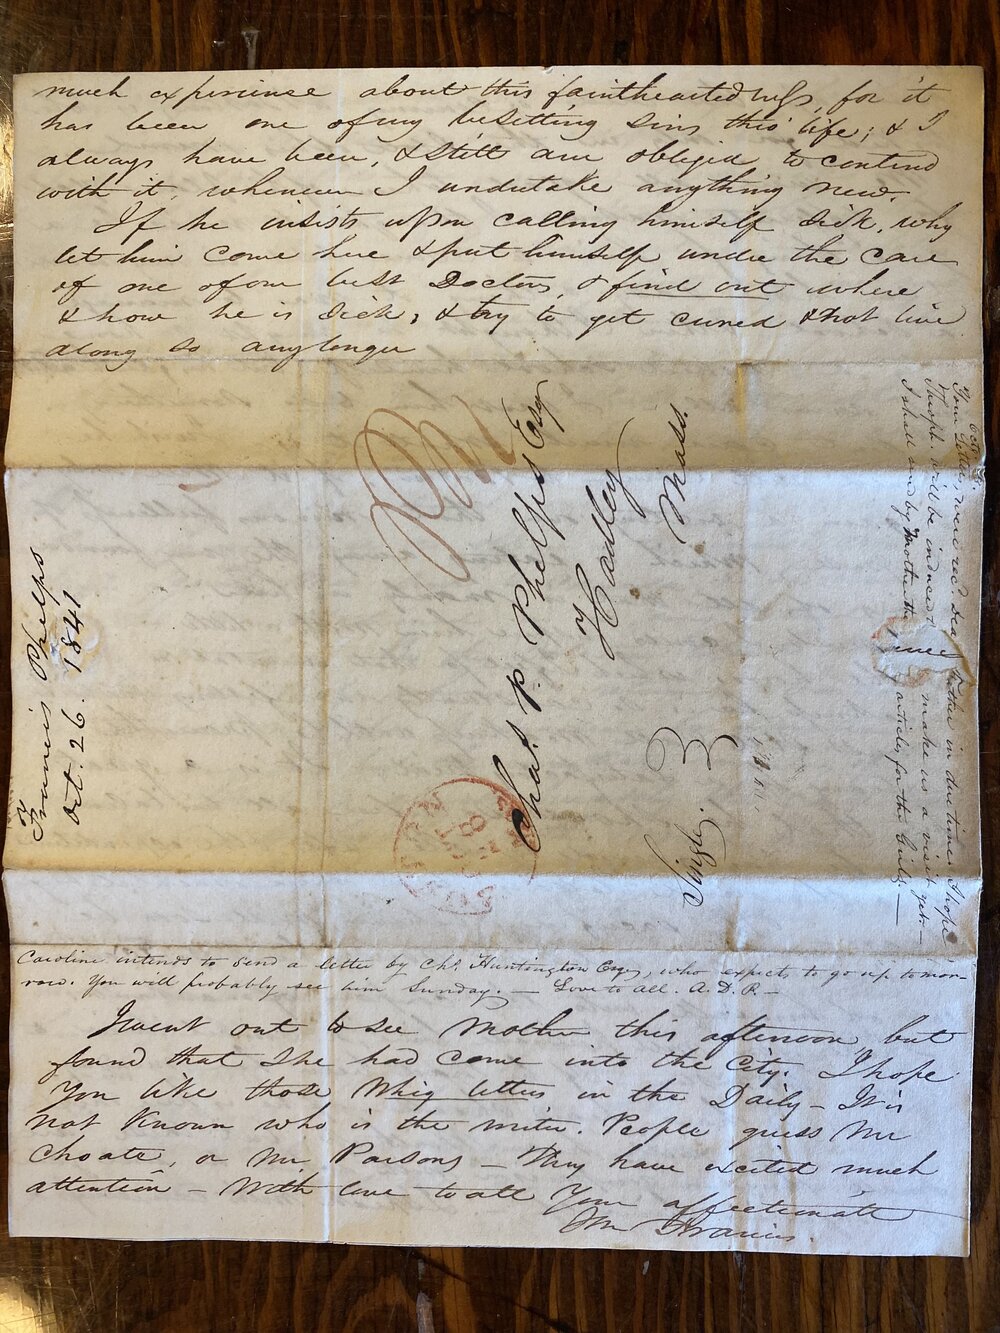 much experience about this faintheartedness, for it
has been one of my besetting sins this life; & I
always have been, & still am obliged to contend
with it, whenever I undertake anything new.
If he insists upon calling himself sick, why
let him come here & put himself under the care
of one of our best Doctors, & find out where
& how he is sick, & try to get cured & not live
along so any longer
Francis Phelps
Oct. 26. 1841
Chas. P. Phelps Esq
Hadley
Mass.
Single. 3
BOSTON
Your Letters, were rec'd. Dear Father in due time. I hope
Theoph. will be induced to make us a visit yet. —
I shall send by Mother the articles for the Girls. —
Caroline intends to send a letter by Chs. Huntington Esq, who expects to go up tomor-
row. You will probably see him Sunday. — Love to all. A. D. P. —
I went out to see Mother this afternoon but
found that she had come into the City. I hope
you like those Whig letters in the Daily — It is
not known who is the writer. People guess Mr
Choate, or Mr Parsons — They have excited much
attention — With love to all Your affectionate
Son Francis.